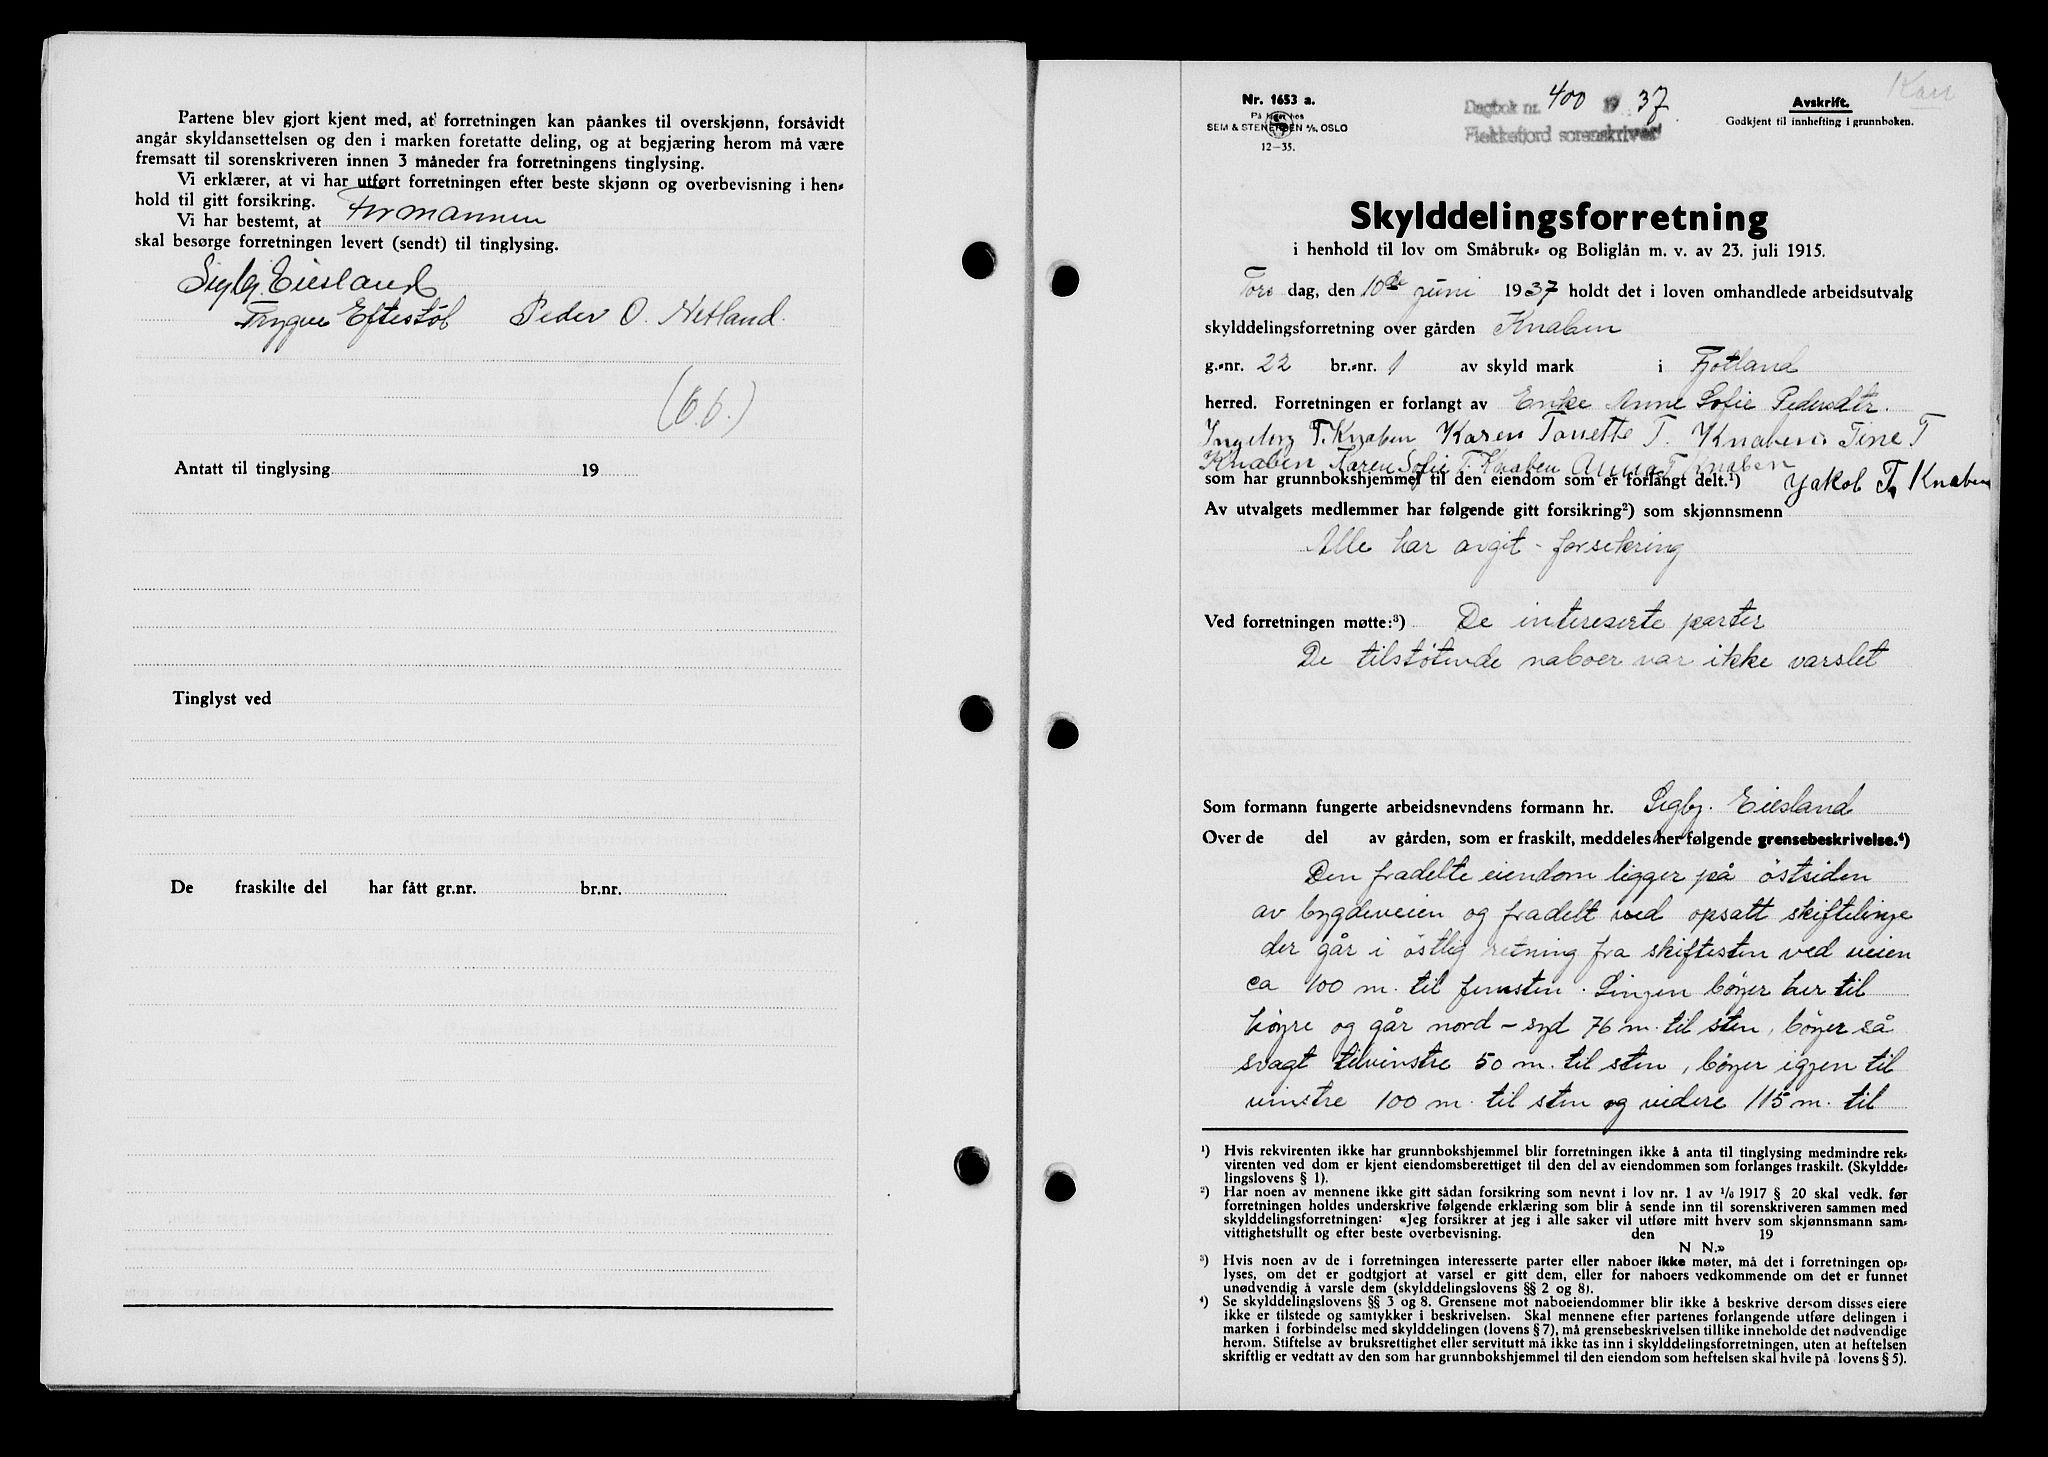 Partene blev gjort kjent med, at forretningen kan påankes til overskjønn, forsåvidt
angår skyldansettelsen og den i marken foretatte deling, og at begjæring herom må være
fremsatt til sorenskriveren innen 3 måneder fra forretningens tinglysing.
Vi erklærer, at vi har utført forretningen efter beste skjønn og overbevisning i hen-
hold til gitt forsikring.
Vi har bestemt, at formannen
skal besørge forretningen levert (sendt) til tinglysing.
Sigbj. Eiesland
Trygve Eftestøl Peder O. Netland.
(6.6.)
Antatt til tinglysing 19
Tinglyst ved
De fraskilte del har fått gr.nr. br.nr.
Nr. 1653 a.
På lager hos
SEM & STENERSEN A/S, OSLO
12-35.
Dagbok nr. 400 19 37
Flekkefjord sorenskriveri
Avskrift.
Godkjent til innhefting i grunnboken.
Skylddelingsforretning
i henhold til lov om Småbruk- og Boliglån m. v. av 23. juli 1915.
Tors dag, den 10de juni 1937 holdt det i loven omhandlede arbeidsutvalg
skylddelingsforretning over gården Knaben
g.-nr. 22 br.-nr. 1 av skyld mark i Fjotland
herred. Forretningen er forlangt av Enke Anne Sofie Pedersdtr.
Ingeborg T. Knaben Karen Tonette T. Knaben Tine T
Knaben Karen Sofie T. Knaben Anna T Knaben
som har grunnbokshjemmel til den eiendom som er forlangt delt.¹) Jakob T. Knaben
Av utvalgets medlemmer har følgende gitt forsikring²) som skjønnsmenn
Alle har avgit forsikring
Ved forretningen møtte:³) De intereserte parter
De tilstøtende naboer var ikke varslet
Som formann fungerte arbeidsnevndens formann hr. Sigbj. Eiesland
Over de del av gården, som er fraskilt, meddeles her følgende grensebeskrivelse.⁴)
Den fradelte eiendom ligger på østsiden
av bygdeveien og fradelt ved opsatt skiftelinje
der går i østlig retning fra skiftesten ved veien
ca 100 m. til femsten. Linjen bøyer her til
høyre og går nord - syd 76 m. til sten, bøyer så
svagt tilvinstre 50 m. til sten, bøyer igjen til
vinstre 100 m. til sten og videre 115 m. til
¹) Hvis rekvirenten ikke har grunnbokshjemmel blir forretningen ikke å anta til tinglysing medmindre rek-
virenten ved dom er kjent eiendomsberettiget til den del av eiendommen som forlanges fraskilt. (Skyldde-
lingslovens § 1).
²) Har noen av mennene ikke gitt sådan forsikring som nevnt i lov nr. 1 av 1/6 1917 § 20 skal vedk. før
forretningen holdes underskrive følgende erklæring som blir å sende inn til sorenskriveren sammen med
skylddelingsforretningen: «Jeg forsikrer at jeg i alle saker vil utføre mitt hverv som skjønnsmann sam-
vittighetsfullt og efter beste overbevisning. den 19
N N.»
³) Hvis noen av de i forretningen interesserte parter eller naboer ikke møter, må det i forretningen op-
lyses, om det er godtgjort at varsel er gitt dem, eller for naboers vedkommende om det er funnet
unødvendig å varsle dem (skylddelingslovens §§ 2 og 8).
⁴) Se skylddelingslovens §§ 3 og 8. Grensene mot naboeiendommer blir ikke å beskrive dersom disses eiere
ikke er tilstede og samtykker i beskrivelsen. Skal mennene efter partenes forlangende utføre delingen i
marken i forbindelse med skylddelingen (lovens § 7), må grensebeskrivelsen tillike inneholde det nødvendige
herom. Stiftelse av bruksrettighet eller servitutt må ikke tas inn i skylddelingsforretningen, uten at heftelsen
skriftlig er vedtatt av den som har grunnbokshjemmel til den eiendom som heftelsen skal hvile på lovens § 5).